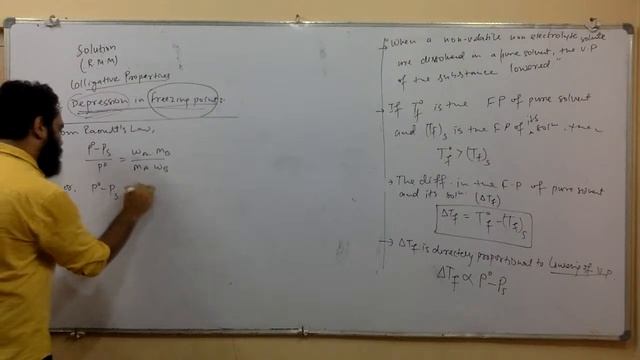 Solution
(R.M.M)
Colligative Properties
Depression in freezing point:
om Raoult's Law,
P°-Ps / P° = WA · MB / MA WB
or, P°-Ps
→ When a non-volatile non electrolyte solute
are dissolved in a pure solvent, the V.P
of the substance lowered"
→ If T°f is the F.P of pure solvent
and (Tf)s is the F.P of its soln. then
T°f > (Tf)s
→ The diff. in the F.P of pure solvent
and its soln (ΔTf)
ΔTf = T°f - (Tf)s
→ ΔTf is directely proportional to lowering of V.P.
ΔTf ∝ P°-Ps